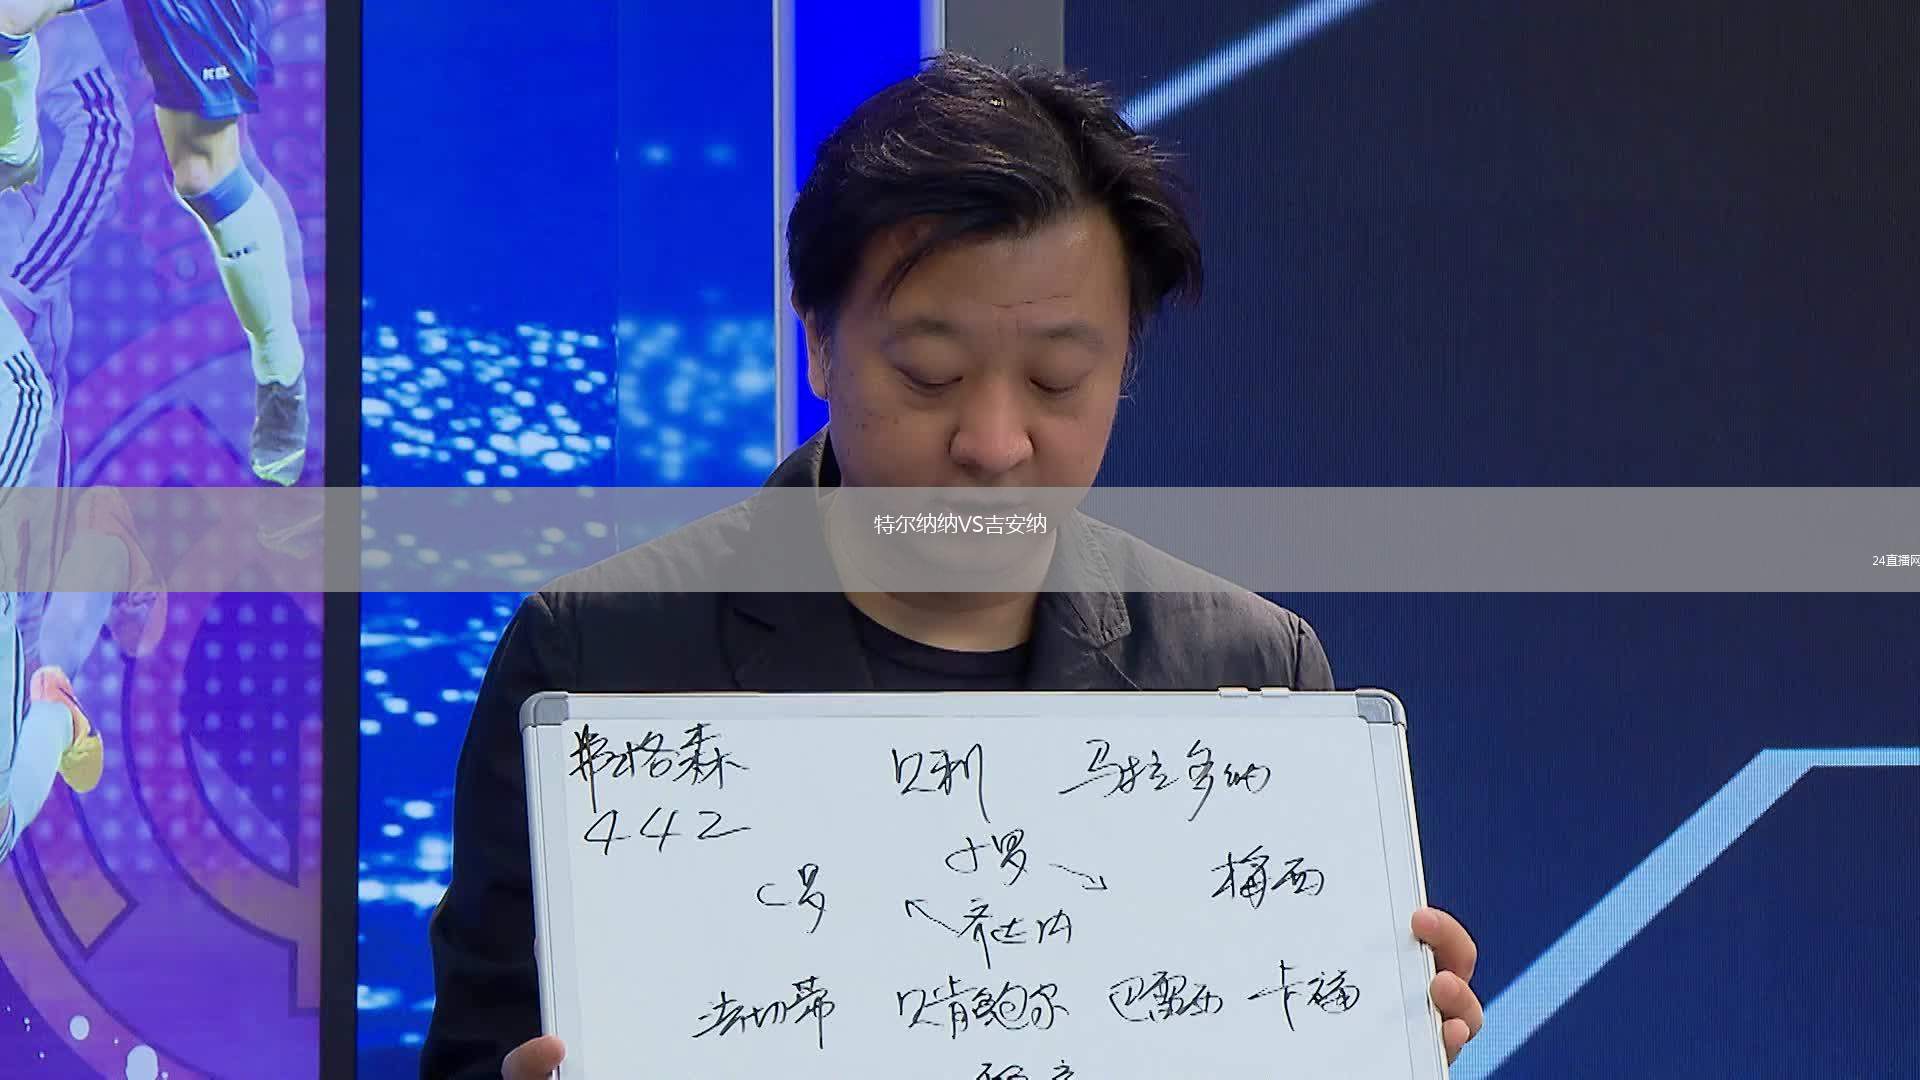 特尔纳纳VS吉安纳
24直播网
弗格森 贝利 马拉多纳
442
小罗
C罗 梅西
齐达内
法切蒂 贝肯鲍尔 巴雷西 卡福